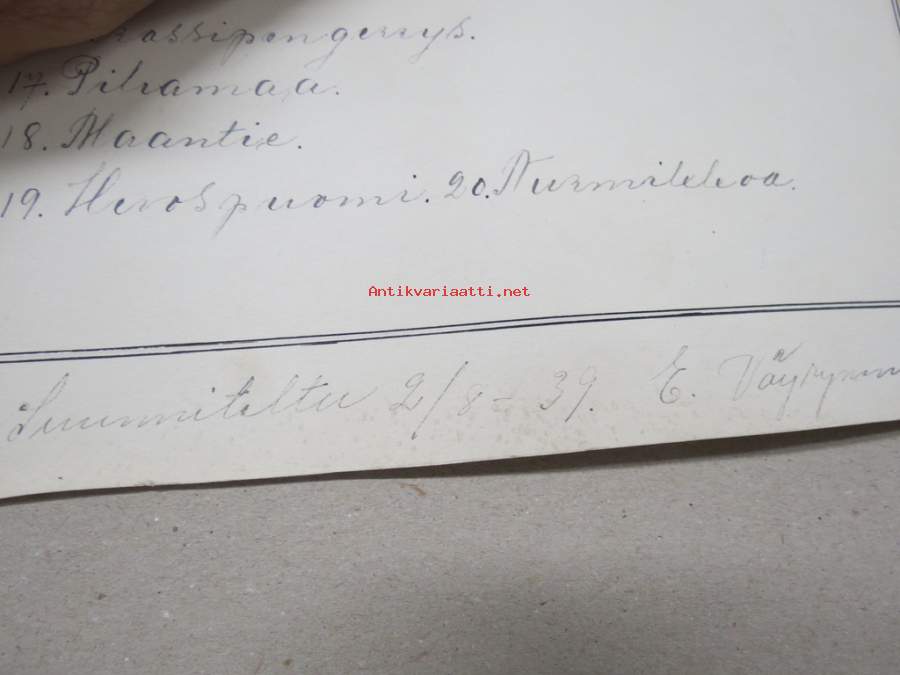 rassipengerrys.
17. Pihamaa.
18. Maantie.
19. Hevospuomi. 20. Nurmikkoa.
Antikvariaatti.net
Suunniteltu 2/8 - 39. E. Väyrynen